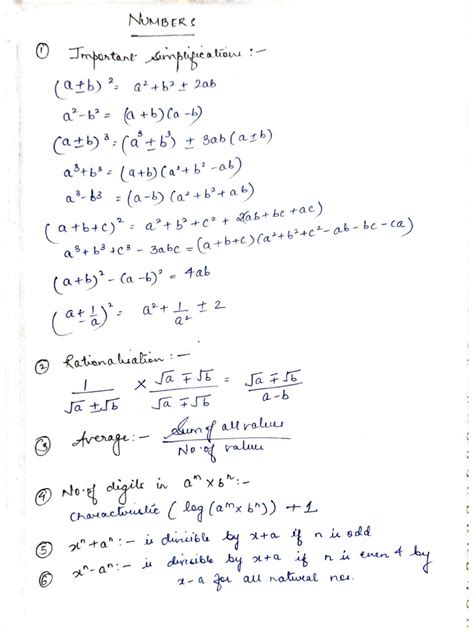 NUMBERS
① Important simplifications :-
(a±b)² = a²+b² ± 2ab
a²-b² = (a+b)(a-b)
(a±b)³ = (a³±b³) ± 3ab(a±b)
a³+b³ = (a+b)(a²+b²-ab)
a³-b³ = (a-b)(a²+b²+ab)
(a+b+c)² = a²+b²+c²+2(ab+bc+ac)
a³+b³+c³-3abc = (a+b+c)(a²+b²+c²-ab-bc-ca)
(a+b)²-(a-b)² = 4ab
(a±1/a)² = a²+1/a² ± 2
② Rationalisation :-
1/(√a±√b) × (√a∓√b)/(√a∓√b) = (√a∓√b)/(a-b)
③ Average:- Sum of all values / No. of values
④ No. of digits in aᵐ×bⁿ:-
Characteristic (log(aᵐ×bⁿ)) +1
⑤ xⁿ+aⁿ:- is divisible by x+a if n is odd
⑥ xⁿ-aⁿ:- is divisible by x+a if n is even & by
x-a for all natural nos.